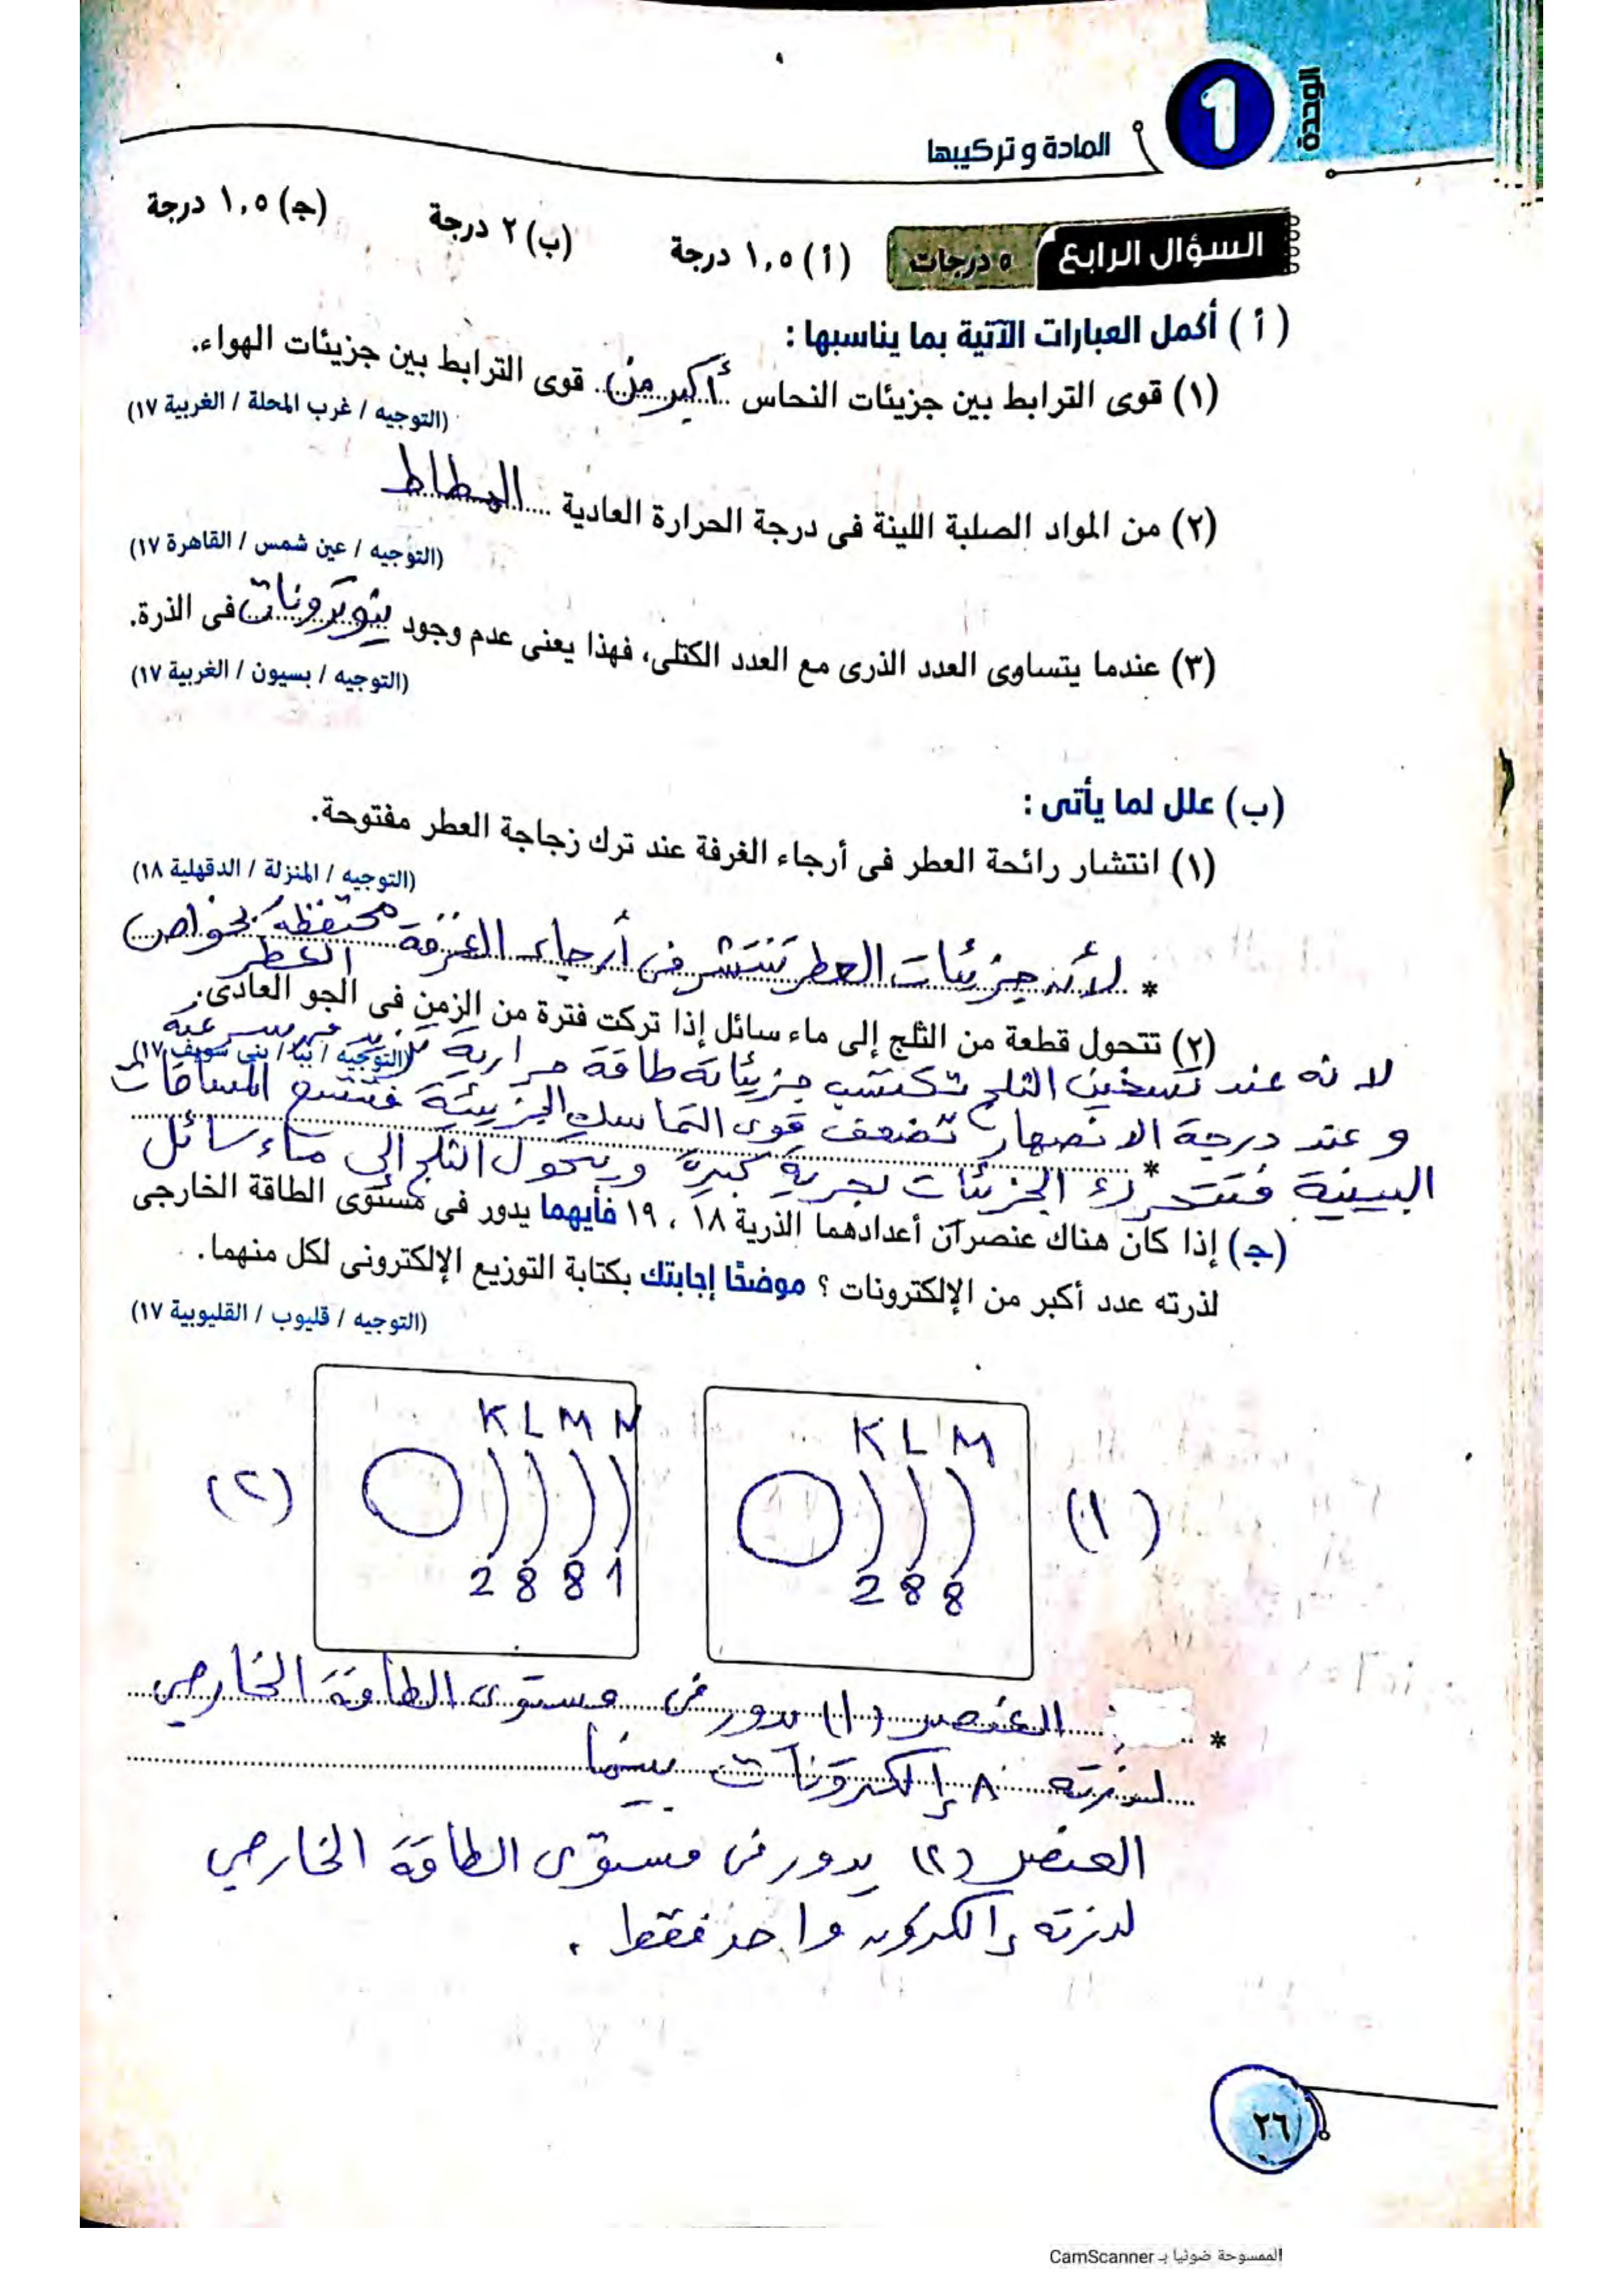 الوحدة
1
المادة وتركيبها
السؤال الرابع ٥ درجات (أ) ١,٥ درجة (ب) ٢ درجة (ج) ١,٥ درجة
(أ) أكمل العبارات الآتية بما يناسبها :
(١) قوى الترابط بين جزيئات النحاس أكبر من قوى الترابط بين جزيئات الهواء.
(التوجيه / غرب المحلة / الغربية ١٧)
(٢) من المواد الصلبة اللينة فى درجة الحرارة العادية المطاط
(التوجيه / عين شمس / القاهرة ١٧)
(٣) عندما يتساوى العدد الذرى مع العدد الكتلى، فهذا يعنى عدم وجود نيوترونات فى الذرة.
(التوجيه / بسيون / الغربية ١٧)
(ب) علل لما يأتى :
(١) انتشار رائحة العطر فى أرجاء الغرفة عند ترك زجاجة العطر مفتوحة.
(التوجيه / المنزلة / الدقهلية ١٨)
* لأن جزيئات العطر تنتشر فى أرجاء الغرفة محتفظة بخواص
العطر
(٢) تتحول قطعة من الثلج إلى ماء سائل إذا تركت فترة من الزمن فى الجو العادى.
(التوجيه / ببا / بنى سويف ١٧)
لانه عند تسخين الثلج تكتسب جزيئاته طاقة حرارية تزيد من سرعته
وعند درجة الانصهار تضعف قوى التماسك الجزيئية فتتسع المسافات
* البينية فتتحرك الجزيئات بحرية كبيرة ويتحول الثلج إلى ماء سائل
(ج) إذا كان هناك عنصرآن أعدادهما الذرية ١٨ ، ١٩ فأيهما يدور فى مستوى الطاقة الخارجى
لذرته عدد أكبر من الإلكترونات ؟ موضحًا إجابتك بكتابة التوزيع الإلكترونى لكل منهما.
(التوجيه / قليوب / القليوبية ١٧)
(١) K L M
2 8 8
(٢) K L M N
2 8 8 1
* العنصر (١) يدور فى مستوى الطاقة الخارجي
لذرته ٨ إلكترونات بينما
العنصر (٢) يدور فى مستوى الطاقة الخارجي
لذرته إلكترون واحد فقط .
٢٦
الممسوحة ضوئيا بـ CamScanner